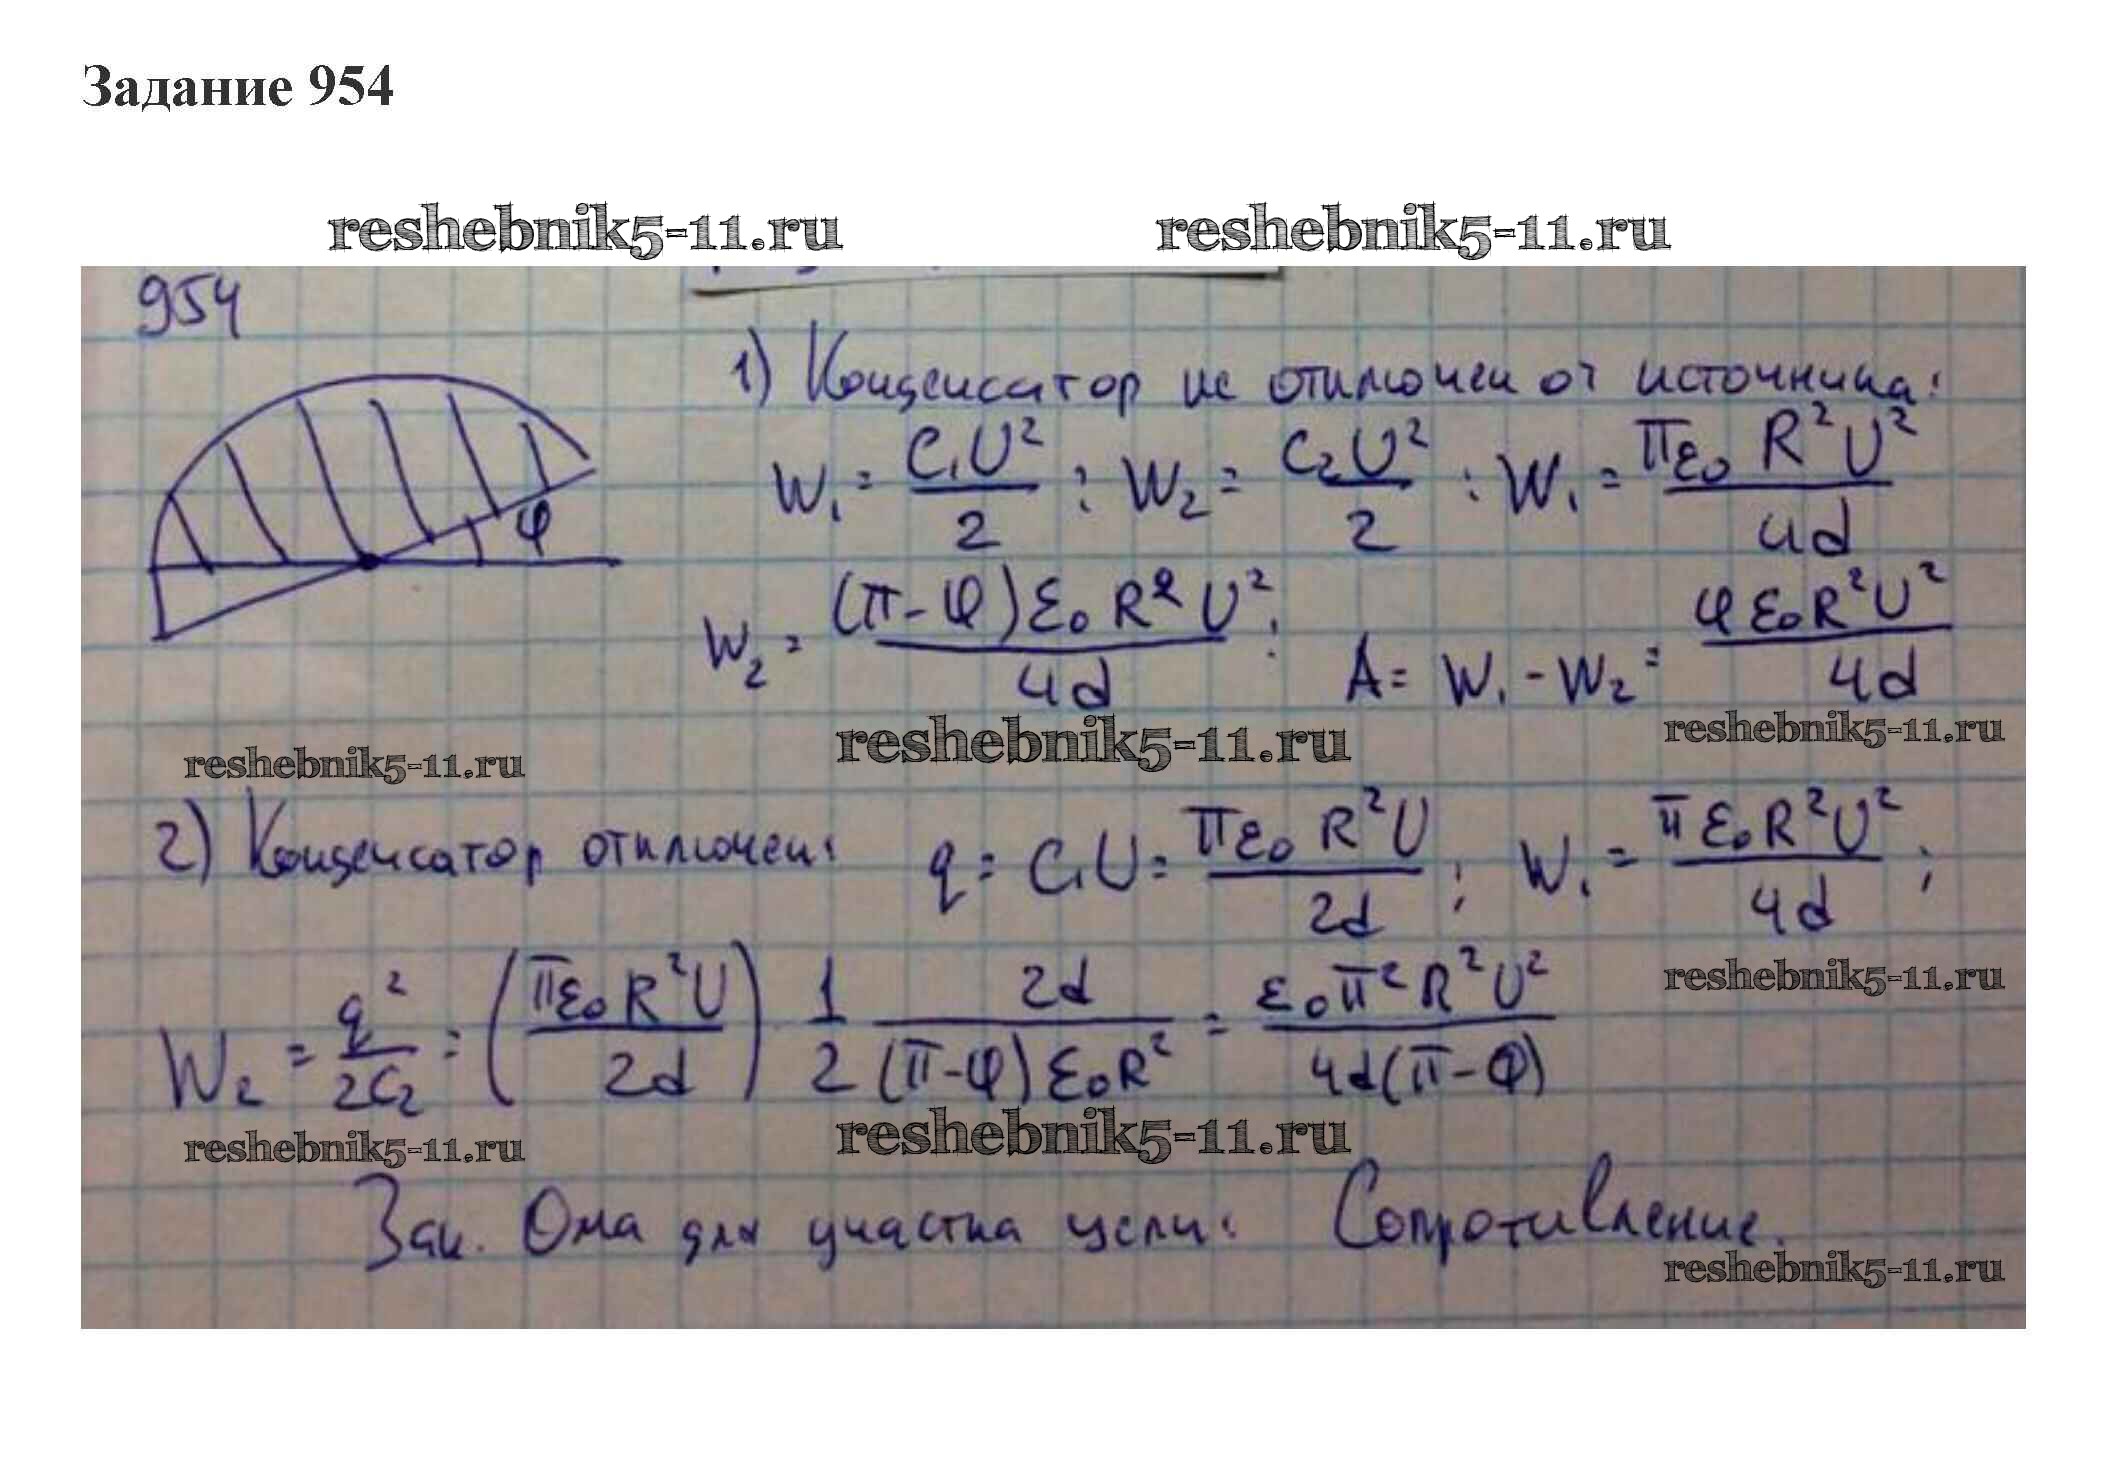 Задание 954
reshebnik5-11.ru reshebnik5-11.ru
954
1) Конденсатор не отключен от источника:
W₁ = C₁U²/2 ; W₂ = C₂U²/2 ; W₁ = πε₀R²U²/4d
φ
W₂ = (π-φ)ε₀R²U²/4d ; A = W₁ - W₂ = φε₀R²U²/4d
reshebnik5-11.ru reshebnik5-11.ru reshebnik5-11.ru
2) Конденсатор отключен: q = C₁U = πε₀R²U/2d ; W₁ = πε₀R²U²/4d ;
reshebnik5-11.ru
W₂ = q²/2C₂ = (πε₀R²U/2d) 1/2 2d/(π-φ)ε₀R² = ε₀π²R²U²/4d(π-φ)
reshebnik5-11.ru reshebnik5-11.ru
Зак. Ома для участка цепи: Сопротивление.
reshebnik5-11.ru